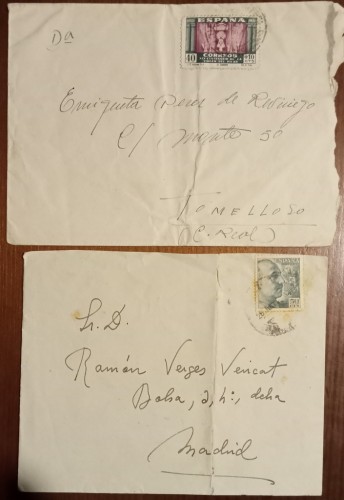 ESPAÑA
CORREOS
40 +10
Dª
Enriqueta Perez de
c/ Monte 50
TOMELLOSO
(C. Real)
Sr. D.
Ramón Verges Vericat
Bolsa, 2, h:, dcha
Madrid